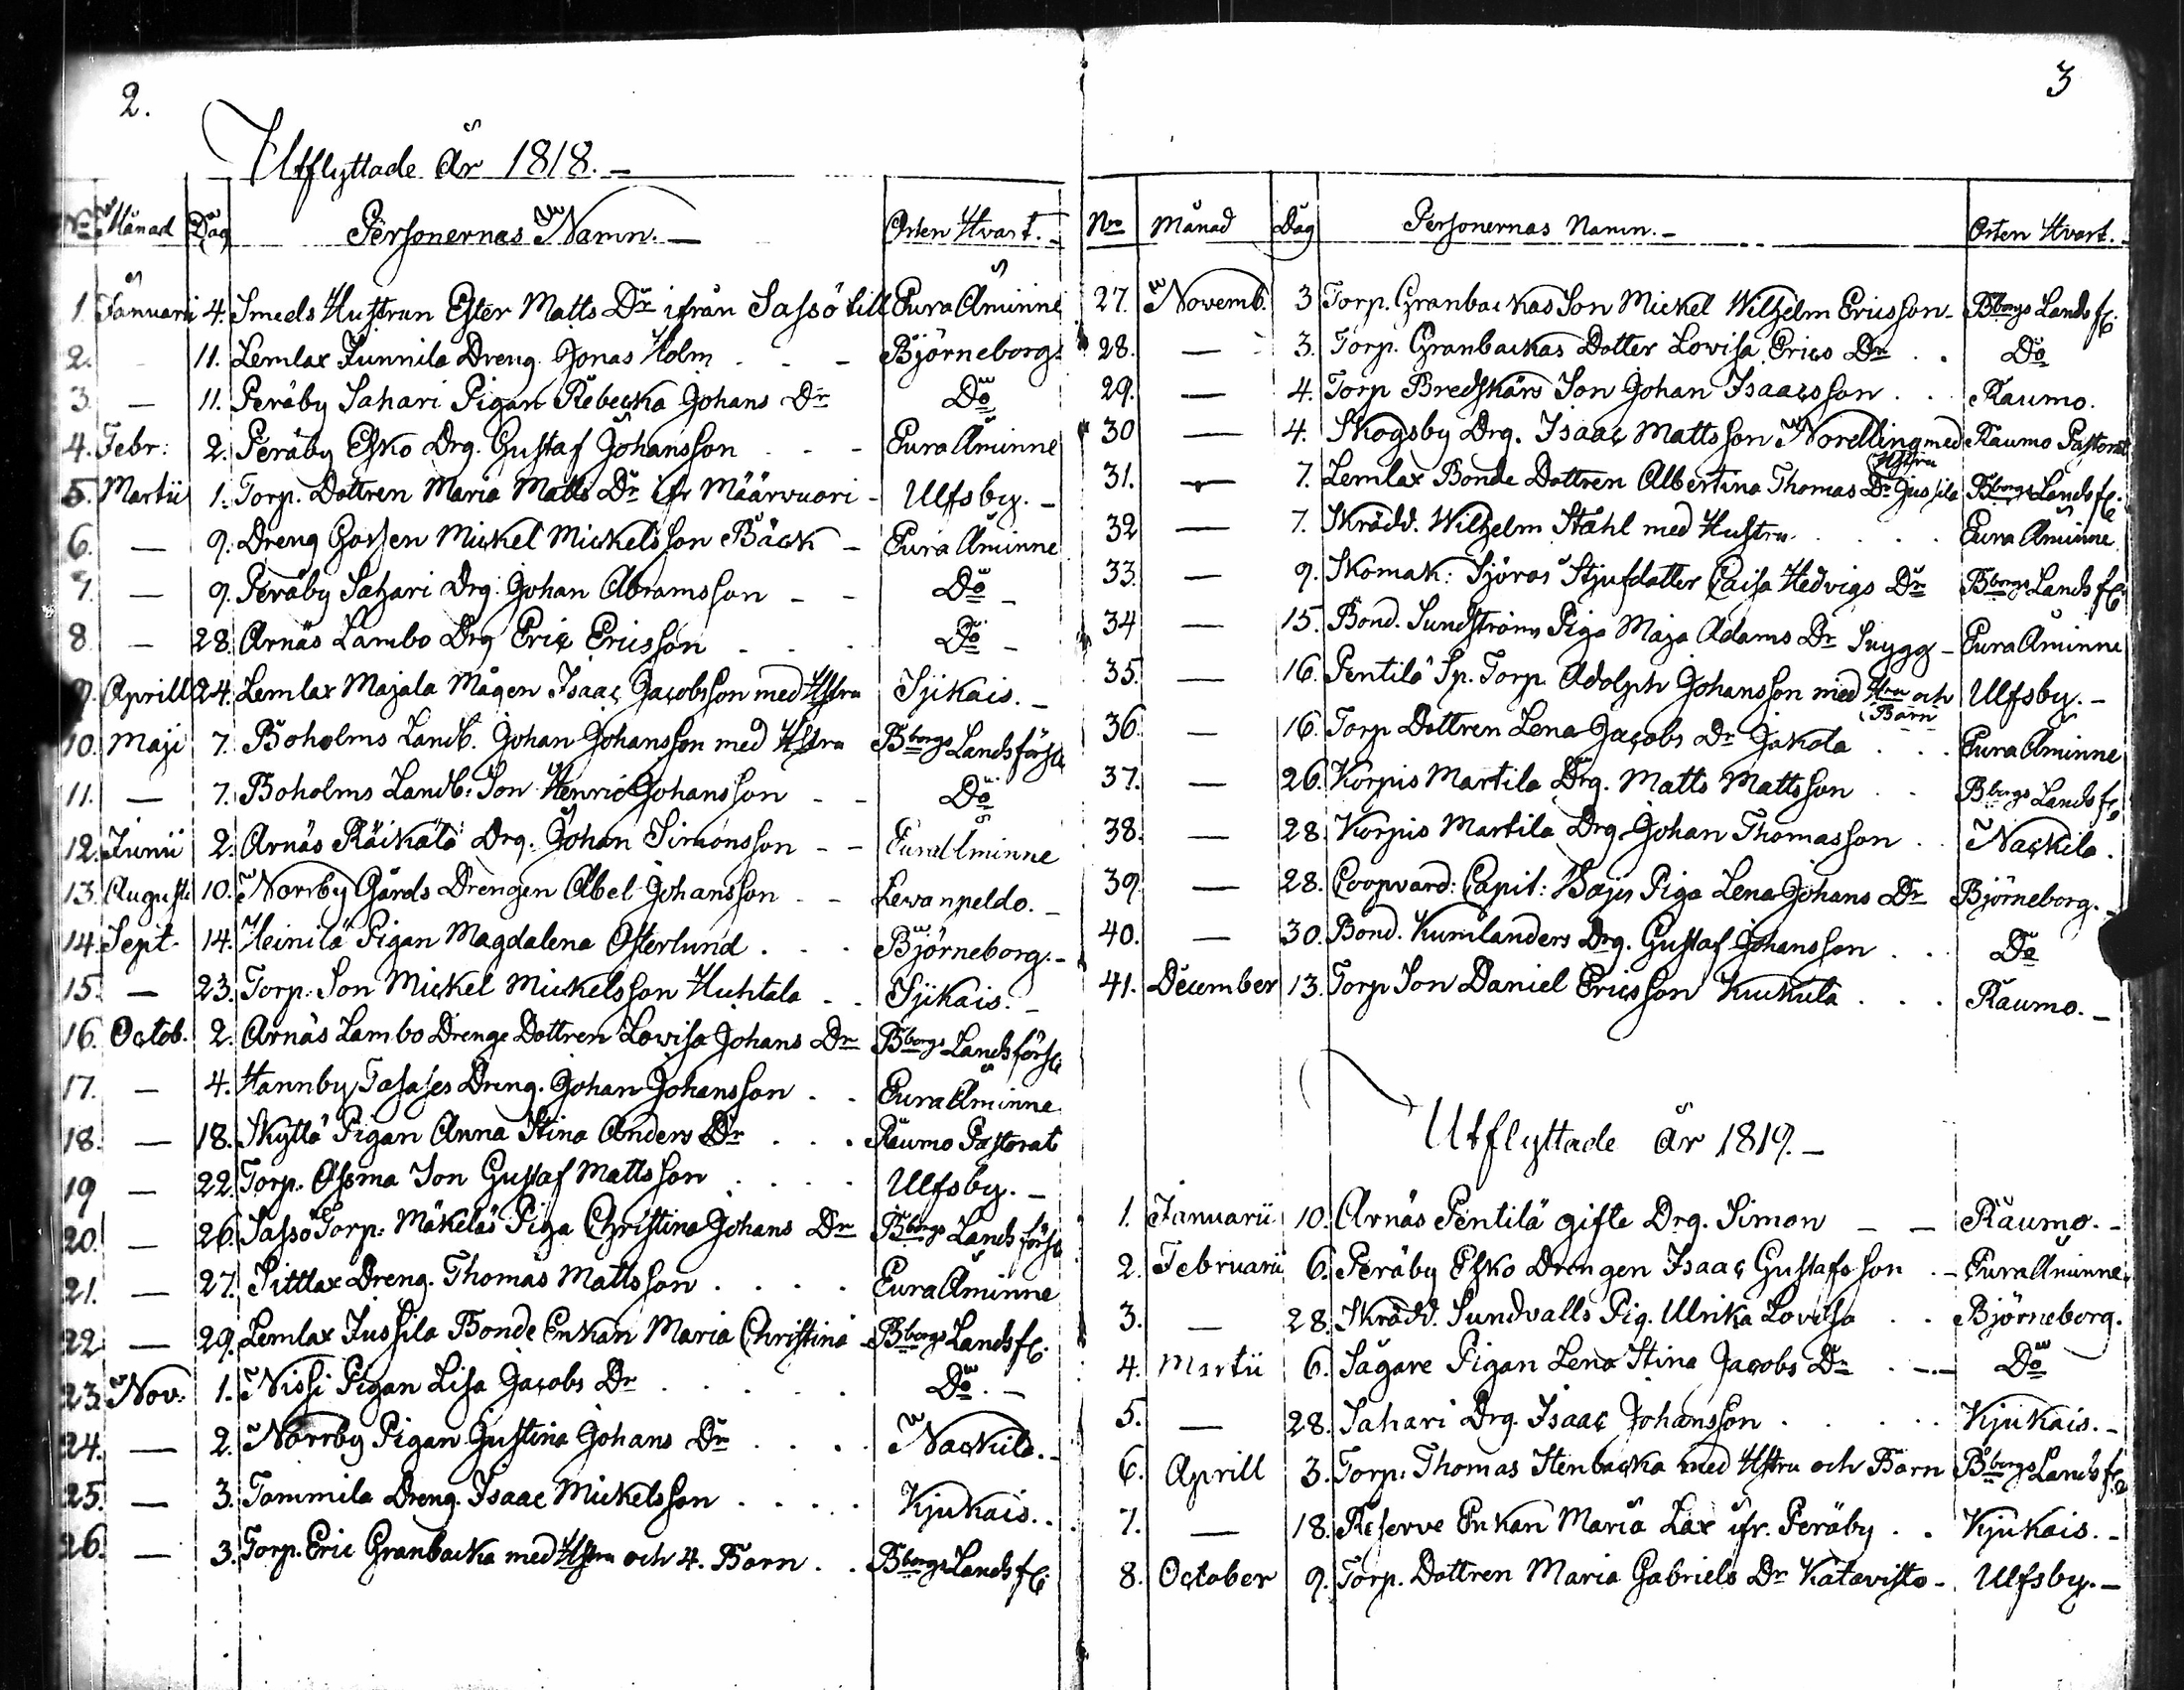 2.
Utflyttade år 1818. –
No Månad Dag Personernas Namn. – Orten Hvart. –
1. Januari 4. Smeds Hustrun Ester Matts Dr ifrån Sassö till Eura Åminne
2. – 11. Lemlax Junnila Dreng Jonas Holm - - - Björneborg.
3. – 11. Peräby Sahari Pigan Rebecka Johans Dr Do
4. Febr: 2. Peräby Esko Drg. Gustaf Johansson - - - Eura Åminne
5. Martii 1. Torp. Dottren Maria Matts Dr ifr Määrvuori - Ulfsby. –
6. – 9. Dreng Gossen Mickel Mickelsson Bäck – Eura Åminne
7. – 9. Peräby Sahari Drg. Johan Abramsson - - Do –
8 – 28 Arnäs Lambo Drg Eric Ericsson - - - Do –
9. Aprill 24. Lemlax Majala Mågen Isaac Jacobsson med Hstru Kjukais. –
10. Maji 7. Boholms Landb. Johan Johansson med Hstru Bborgs Landsförsl.
11. – 7. Boholms Landb: Son Henric Johansson - - Do
12. Junii 2. Arnäs Räikälä Drg. Johan Simonsson - - Eura Åminne
13. Augusti 10. Norrby Gårds Drengen Abel Johansson - - Levanpeldo. –
14. Sept. 14. Heinilä Pigan Magdalena Osterlund . . . Björneborg. –
15. – 23. Torp. Son Mickel Mickelsson Huhtala - - Kjukais. –
16. Octob. 2. Arnäs Lambo Drenge Dottren Lovisa Johans Dr Bborgs Landsförsl.
17. – 4. Hannby Tasases Dreng. Johan Johansson . . Eura Åminne
18. – 18. Skyttä Pigan Anna Stina Anders Dr . . . Raumo Pastorat
19 – 22. Torp. Assma Son Gustaf Mattsson . . . . Ulfsby. –
20. – 26. Sassö Torp: Mäkeläs Piga Christina Johans Dr Bborgs Landsförsl.
21. – 27. Sittlax Dreng. Thomas Mattsson . . . . Eura Åminne
22 – 29. Lemlax Jussila Bonde Enkan Maria Christina – Bborgs Lands f.
23. Nov. 1. Nissi Pigan Lisa Jacobs Dr . . . . . Do. –
24. – 2. Norrby Pigan Justina Johans Dr . . . . Nackila. –
25. – 3. Tommila Dreng. Isaac Mickelsson . . . . Kjukais. .
26. – 3. Torp. Eric Granbacka med Hstru och 4. Barn . . Bborgs Lands f.
3
No Månad Dag Personernas Namn. – Orten Hvart. –
27. Novemb. 3 Torp. Granbackas Son Mickel Wilhelm Ericsson – Bborgs Lands f.
28. – 3. Torp. Granbackas Dotter Lovisa Erics Dr . . Do
29. – 4. Torp Bredskärs Son Johan Isaacsson . . Raumo.
30 – 4. Skogsby Drg. Isaac Mattsson Nordling med Hstru Raumo Pastorat
31. – 7. Lemlax Bonde Dottren Albertina Thomas Dr Jussila Bborgs Lands f.
32 – 7. Skrädd. Wilhelm Stähl med Hustru . . . . Eura Åminne.
33. – 9. Skomak: Sjöros Stjufdotter Caisa Hedvigs Dr Bborgs Lands f.
34 – 15. Bond. Sundströms Piga Maja Adams Dr Snygg – Eura Åminne
35. – 16. Pentilä Sp. Torp. Adolph Johansson med Hru och Barn Ulfsby. –
36. – 16. Torp Dottren Lena Jacobs Dr Jakola . . . Eura Åminne
37. – 26. Korpis Martila Drg. Matts Mattsson . . Bborgs Lands f.
38. – 28. Korpis Martila Drg. Johan Thomasson . . Nackila.
39. – 28. Coopvard: Capit: Bojs Piga Lena Johans Dr Björneborg. –
40. – 30. Bond. Kumlanders Drg. Gustaf Johansson . . . Do
41. December 13. Torp Son Daniel Ericsson Kuckula . . . Raumo. –
Utflyttade år 1819. –
1. Januarii 10. Arnäs Pentilä gifte Drg. Simon – – Raumo. –
2. Februarii 6. Peräby Esko Drengen Isaac Gustafsson . – Eura Åminne.
3. – 28. Skrädd. Sundvalls Pig. Ulrika Lovisa . . Björneborg.
4. Martii 6. Sågare Pigan Lena Stina Jacobs Dr . – – Do
5. – 28. Sahari Drg. Isaac Johansson . . . . . Kjukais. –
6. Aprill 3. Torp: Thomas Stenbacka med Hstru och Barn Bborgs Lands f.
7. – 18. Reserve Enkan Maria Lax ifr. Peräby . . Kjukais. –
8. October 9. Torp. Dottren Maria Gabriels Dr Katavisto – Ulfsby. –